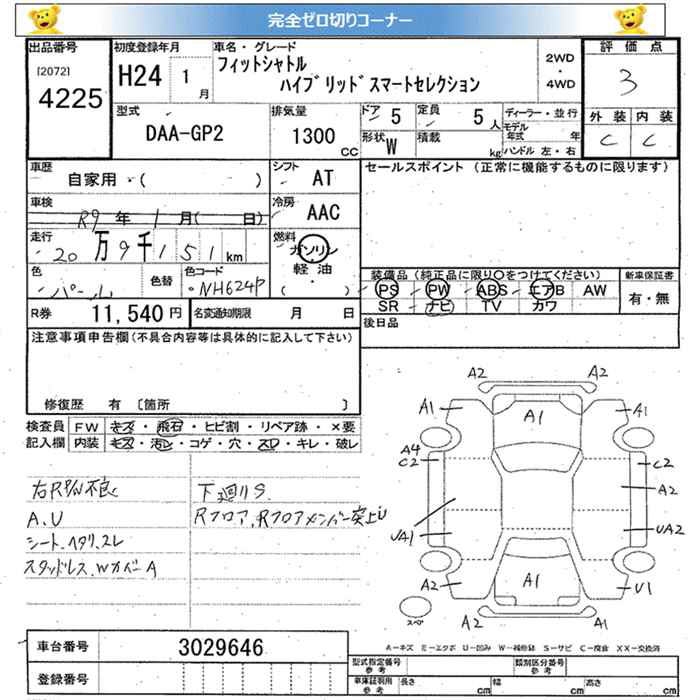 完全ゼロ切りコーナー
出品番号
[2072]
4225
初度登録年月
H24 1月
車名・グレード
フィットシャトル
ハイブリッドスマートセレクション
2WD
・
4WD
評価点
3
外装 内装
C C
型式
DAA-GP2
排気量
1300
CC
ドア 5
定員 5人
形状 W
積載 kg
ディーラー・並行
モデル年式 年
ハンドル 左・右
車歴
自家用・( )
シフト AT
セールスポイント (正常に機能するものに限ります)
車検
R9年 1月( 日)
冷房 AAC
走行
20万9千151km
燃料
ガソリン
軽油
( )
色
パール
色替
色コード
NH624P
装備品 (純正品に限り○をつけてください)
PS PW ABS エアB AW
SR ナビ TV カワ
新車保証書
有・無
R券 11,540円
名変通知期限 月 日
後日品
注意事項申告欄(不具合内容等は具体的に記入して下さい)
修復歴 有 [箇所 ]
検査員記入欄
FW キズ・飛石・ヒビ割・リペア跡・×要
内装 キズ・汚レ・コゲ・穴・スレ・キレ・破レ
右RP/W不良
A.U
シート.ヘタリ.スレ
スタッドレス.WカバーA
下廻りS
Rフロア,Rフロアメンバー突上U
A2 A2
A1 A1 A1
A4
C2 C2
A2
UA1 UA2
A2 A1 U1
A2 A1
スペア
A-キズ E-エクボ U-凹み W-補修跡 S-サビ C-腐食 XX-交換済
車台番号 3029646
登録番号
型式指定番号
参考
類別区分番号
参考
車庫証明用
参考
長さ cm 幅 cm 高さ cm